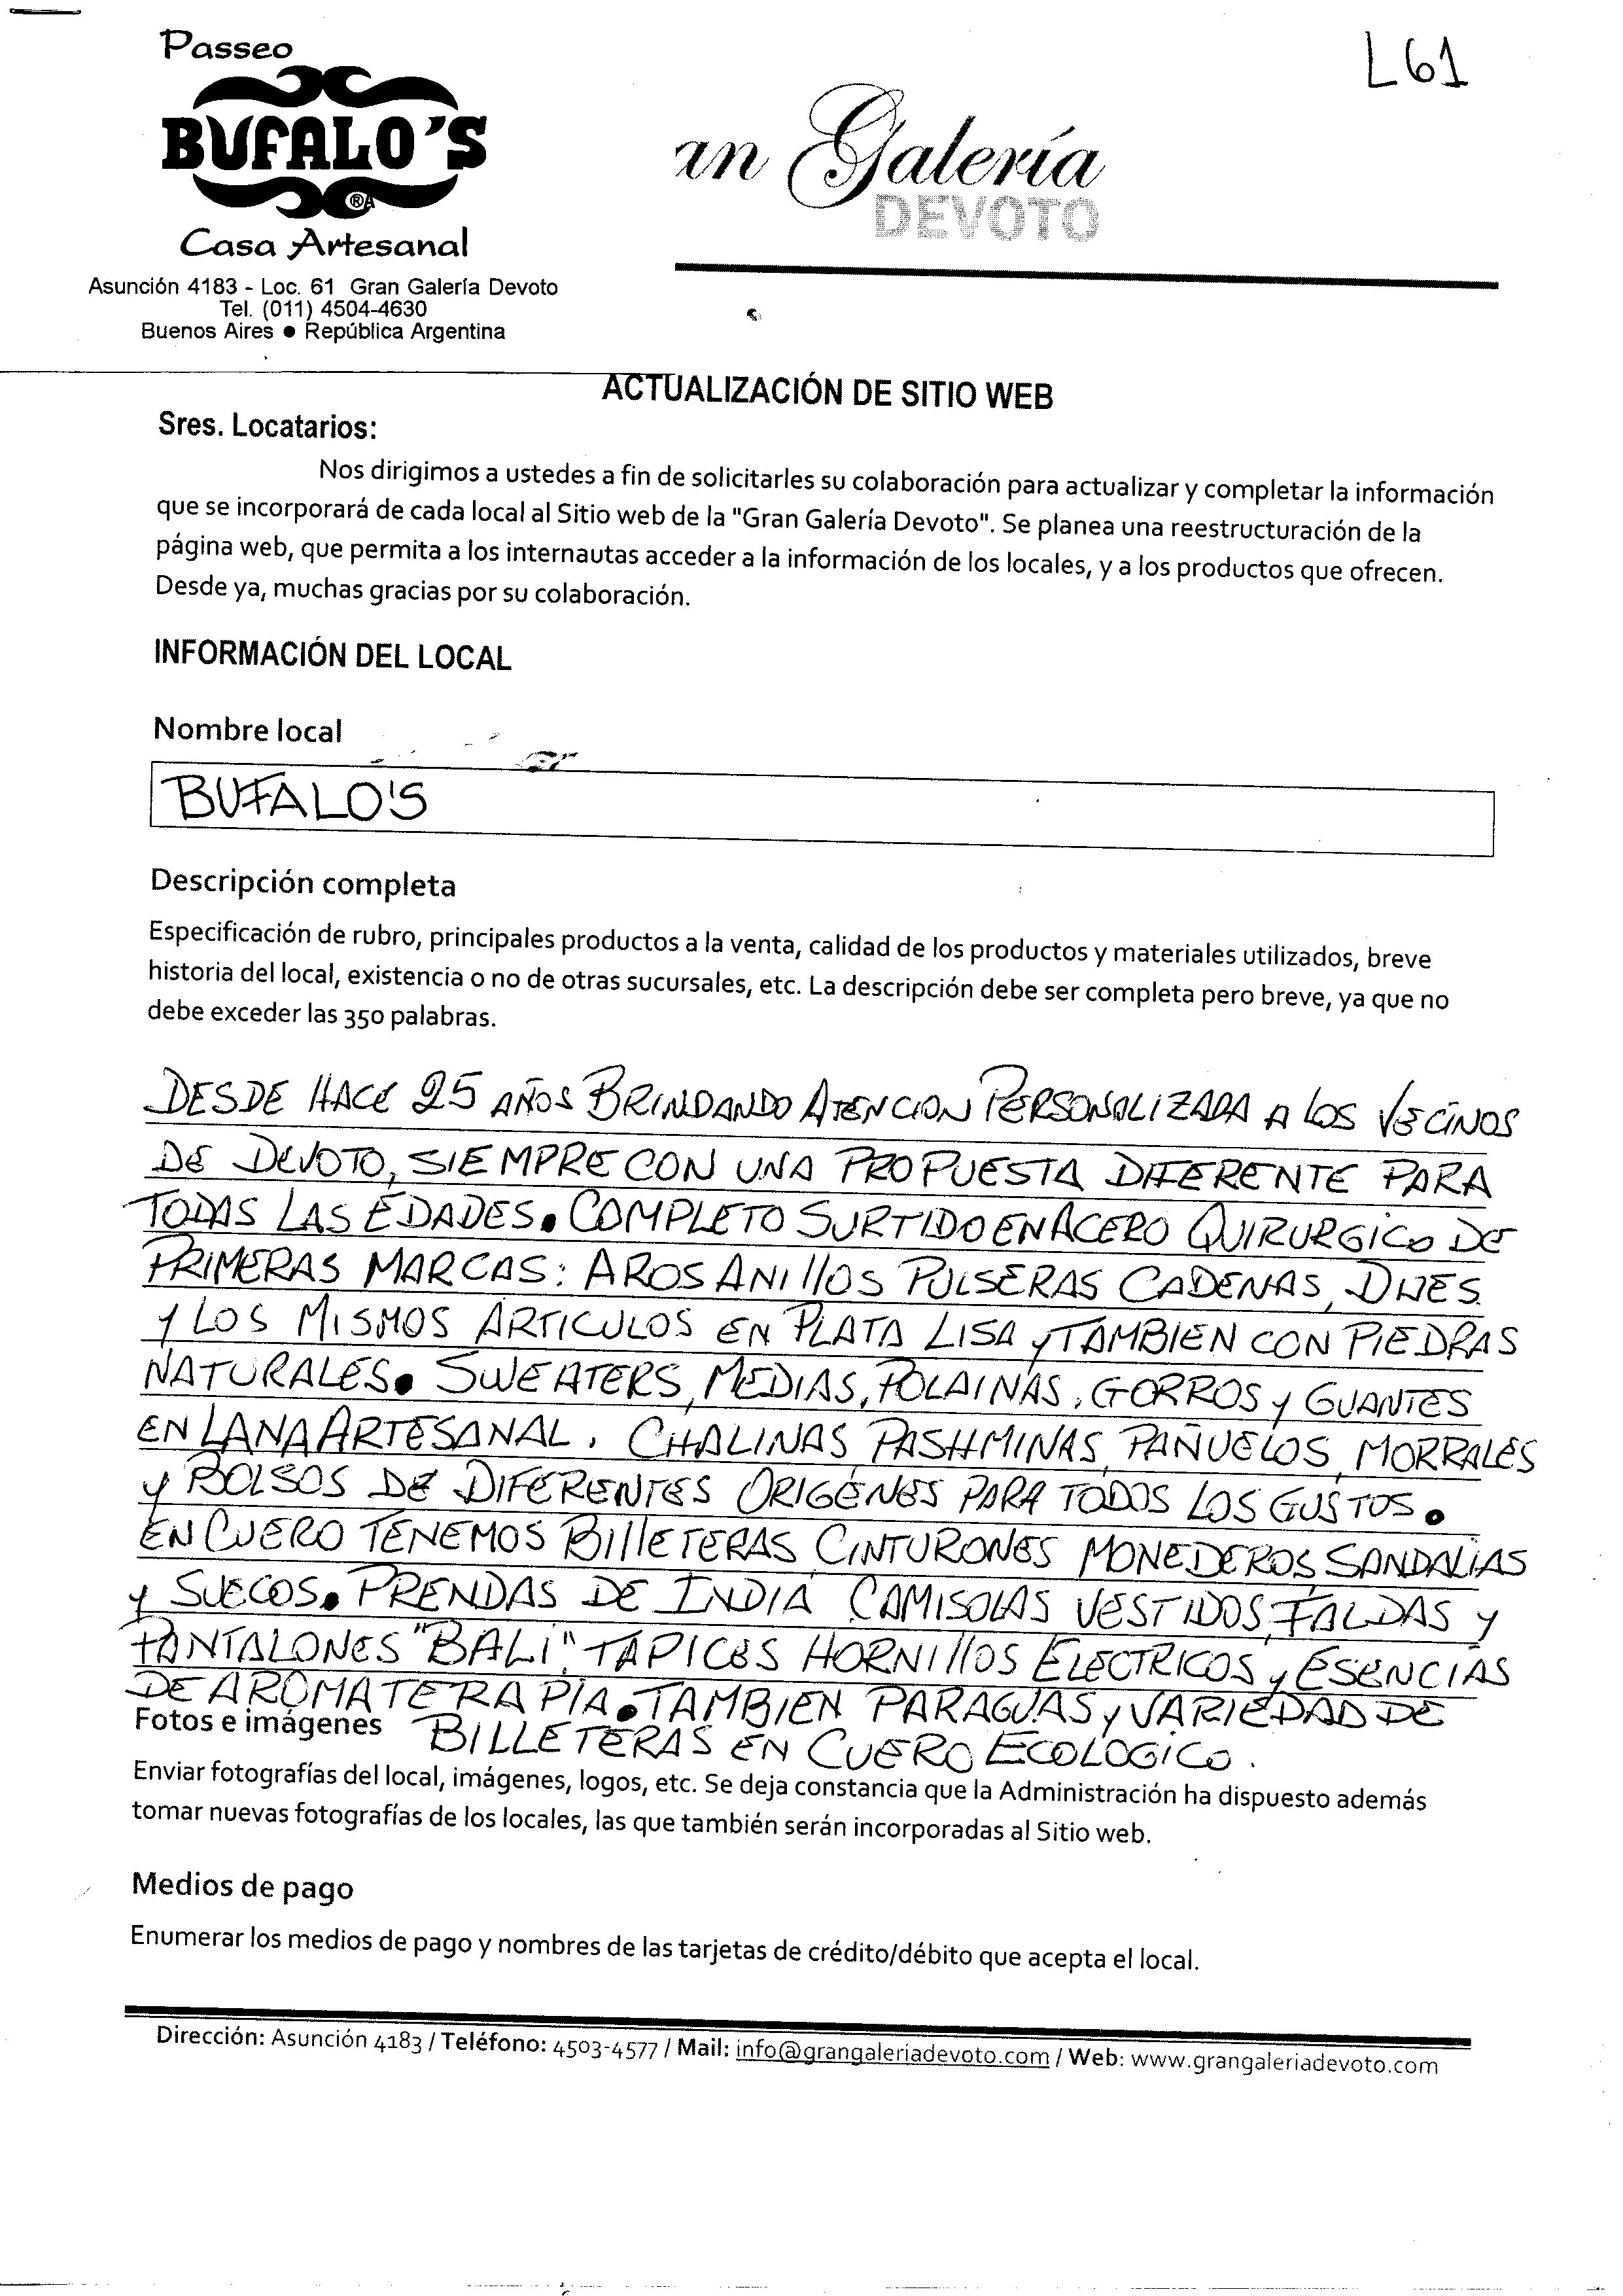 Passeo
L61
BUFALO'S
®A
an Galería
DEVOTO
Casa Artesanal
Asunción 4183 - Loc. 61 Gran Galería Devoto
Tel. (011) 4504-4630
Buenos Aires ● República Argentina
ACTUALIZACIÓN DE SITIO WEB
Sres. Locatarios:
Nos dirigimos a ustedes a fin de solicitarles su colaboración para actualizar y completar la información
que se incorporará de cada local al Sitio web de la "Gran Galería Devoto". Se planea una reestructuración de la
página web, que permita a los internautas acceder a la información de los locales, y a los productos que ofrecen.
Desde ya, muchas gracias por su colaboración.
INFORMACIÓN DEL LOCAL
Nombre local
BUFALO'S
Descripción completa
Especificación de rubro, principales productos a la venta, calidad de los productos y materiales utilizados, breve
historia del local, existencia o no de otras sucursales, etc. La descripción debe ser completa pero breve, ya que no
debe exceder las 350 palabras.
DESDE HACE 25 AÑOS BRINDANDO ATENCION PERSONALIZADA A LOS VECINOS
DE DEVOTO, SIEMPRE CON UNA PROPUESTA DIFERENTE PARA
TODAS LAS EDADES. COMPLETO SURTIDO EN ACERO QUIRURGICO DE
PRIMERAS MARCAS: AROS ANILLOS PULSERAS CADENAS, DIJES
Y LOS MISMOS ARTICULOS EN PLATA LISA Y TAMBIEN CON PIEDRAS
NATURALES. SWEATERS, MEDIAS, POLAINAS, GORROS Y GUANTES
EN LANA ARTESANAL. CHALINAS PASHMINAS, PAÑUELOS, MORRALES
Y BOLSOS DE DIFERENTES ORIGENES PARA TODOS LOS GUSTOS.
EN CUERO TENEMOS BILLETERAS, CINTURONES MONEDEROS, SANDALIAS
Y SUECOS. PRENDAS DE INDIA CAMISOLAS VESTIDOS, FALDAS Y
PANTALONES "BALI", TAPICES HORNILLOS ELECTRICOS Y ESENCIAS
DE AROMATERAPIA. TAMBIEN PARAGUAS Y VARIEDAD DE
BILLETERAS EN CUERO ECOLOGICO.
Fotos e imágenes
Enviar fotografías del local, imágenes, logos, etc. Se deja constancia que la Administración ha dispuesto además
tomar nuevas fotografías de los locales, las que también serán incorporadas al Sitio web.
Medios de pago
Enumerar los medios de pago y nombres de las tarjetas de crédito/débito que acepta el local.
Dirección: Asunción 4183 / Teléfono: 4503-4577 / Mail: info@grangaleriadevoto.com / Web: www.grangaleriadevoto.com